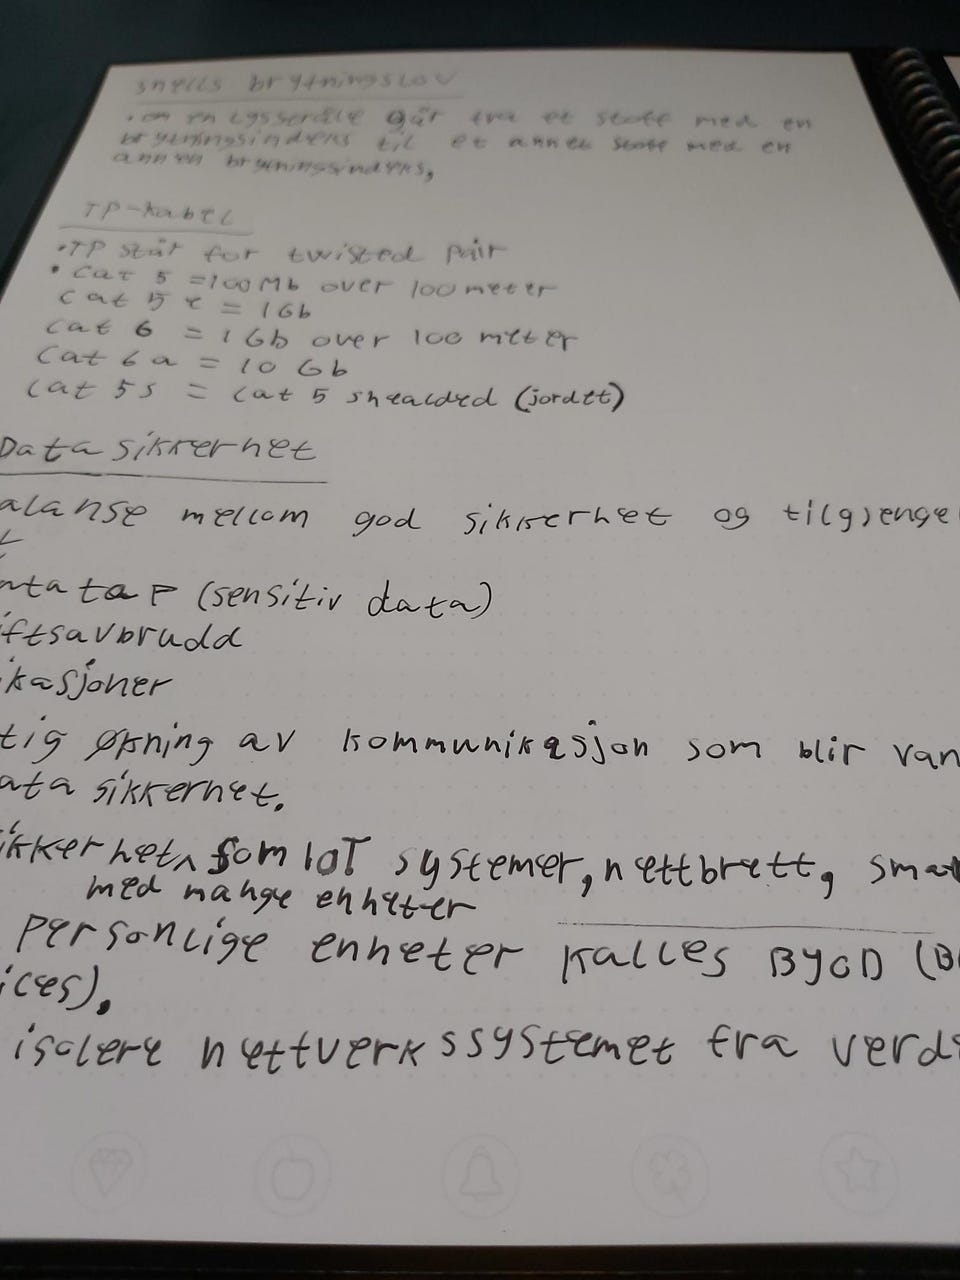 snells brytningslov
• om en lysstråle går fra et stoff med en
brytningsindeks til et annet stoff med en
annen brytningsindeks,
TP-kabel
• TP står for twisted pair
• Cat 5 = 100 Mb over 100 meter
Cat 5 e = 1 Gb
Cat 6 = 1 Gb over 100 meter
Cat 6 a = 10 Gb
Cat 5s = Cat 5 shealded (jordet)
Data sikkerhet
alanse mellom god sikkerhet og tilgjenge
t
ntatap (sensitiv data)
iftsavbrudd
ikasjoner
tig økning av kommunikasjon som blir van
ata sikkerhet.
ikkerhet, som IoT systemer, nettbrett, smat
med mange enheter
personlige enheter kalles BYOD (B
ices).
isolere nettverkssystemet fra verd